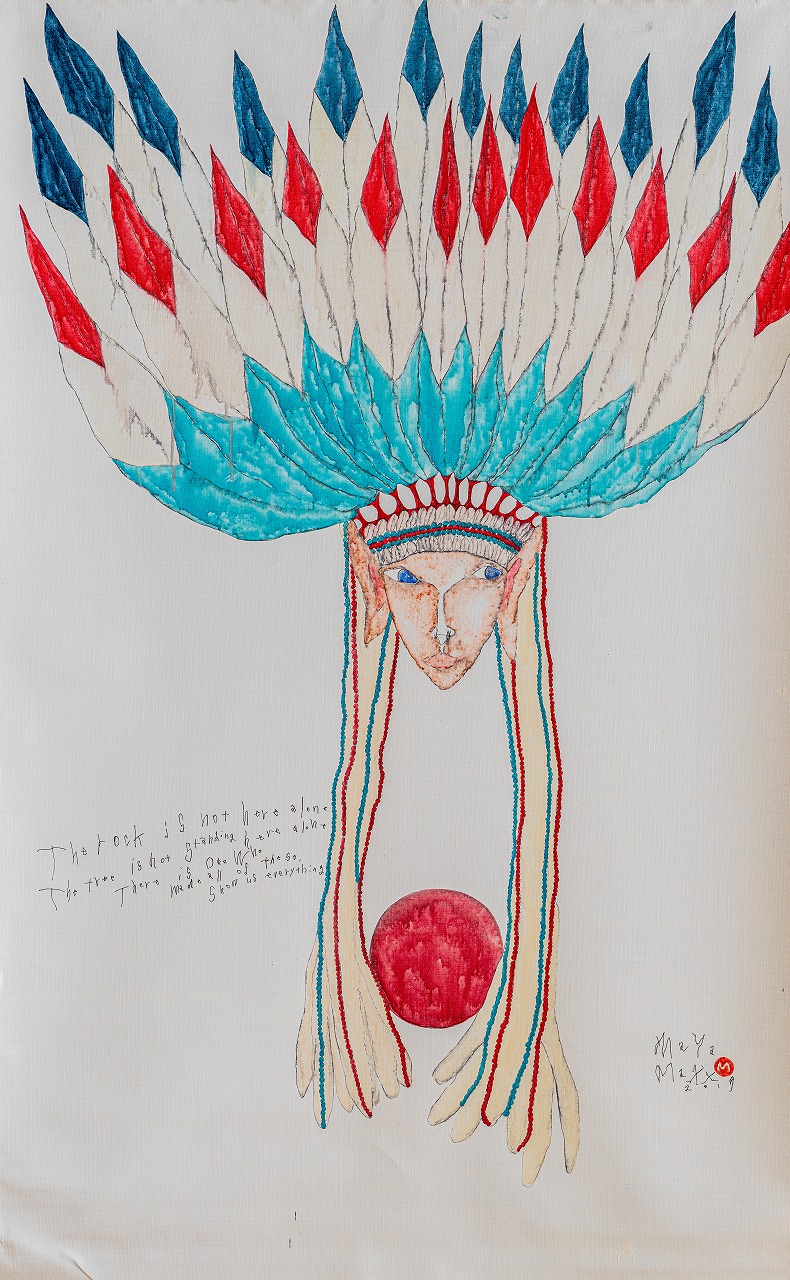 The rock is not here alone
The tree is not standing here alone
There is One Who
made all of these,
Show us everything
MaYa
MaXx
M
2019